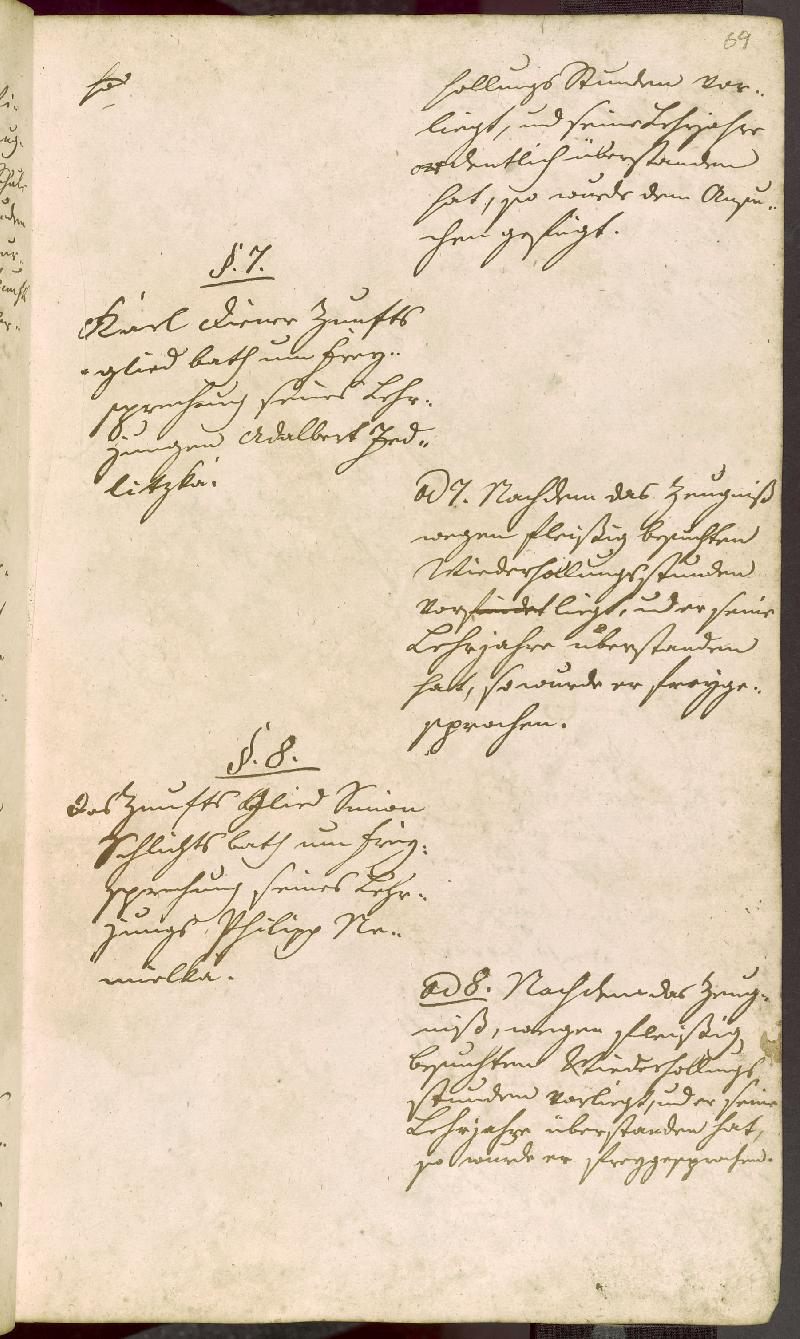 69
hollungs Stunden vor-
liegt, und seine Lehrjahre
ordentlich überstanden
hat, so wurde dem Ansu-
chen gefügt.
§. 7.
Karl Diener Zunfts
glied bath um Frey-
sprechung seines Lehr-
jungen Adalbert Jed-
litzka.
ad 7. Nachdem das Zeugniß
wegen fleißig besuchten
Wiederhollungsstunden
vorfindet liegt, und er seine
Lehrjahre überstanden
hat, so wurde er freyge-
sprochen.
§. 8.
Das Zunfts Glied Simon
Schlichts bath um Frey-
sprechung seines Lehr-
jungs Philipp Ne-
mielka.
ad 8. Nachdem das Zeug-
niß, wegen fleißig
besuchten Wiederhollungs
stunden vorliegt, und er seine
Lehrjahre überstanden hat,
so wurde er freygesprochen.